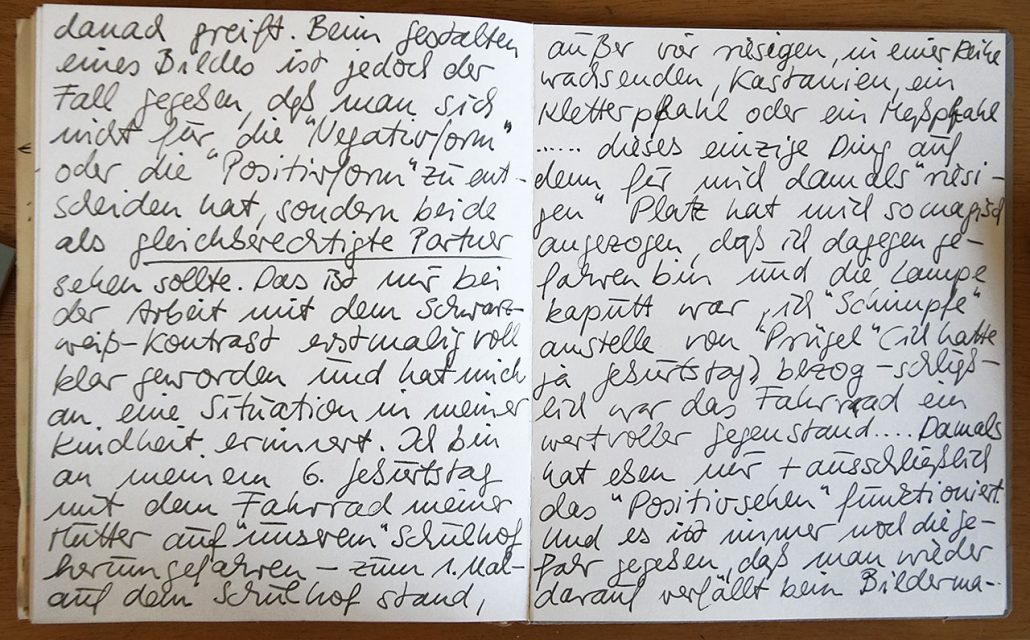 danach greift. Beim gestalten
eines Bildes ist jedoch der
Fall gegeben, daß man sich
nicht für die "Negativform"
oder die "Positivform" zu ent-
scheiden hat, sondern beide
als gleichberechtigte Partner
sehen sollte. Das ist mir bei
der Arbeit mit dem Schwarz-
weiß-Kontrast erstmalig voll
klar geworden und hat mich
an eine Situation in meiner
Kindheit erinnert. Ich bin
an meinem 6. Geburtstag
mit dem Fahrrad meiner
Mutter auf "unserem" Schulhof
herumgefahren – zum 1. Mal-
auf dem Schulhof stand,
außer vier riesigen, in einer Reihe
wachsenden, Kastanien, ein
Kletterpfahl oder ein Meßpfahl
...... dieses einzige Ding auf
dem für mich damals "riesi-
gen" Platz hat mich so magisch
angezogen, daß ich dagegen ge-
fahren bin und die Lampe
kaputt war, ich "Schimpfe"
anstelle von "Prügel" (ich hatte
ja Geburtstag) bezog – schließ-
lich war das Fahrrad ein
wertvoller Gegenstand.... Damals
hat eben nur + ausschließlich
das "Positivsehen" funktioniert.
Und es ist immer noch die Ge-
fahr gegeben, daß man wieder
darauf verfällt beim Bilderma-